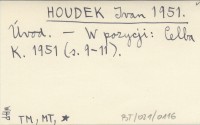 HOUDEK Ivan 1951.
Úvod. — W pozycji: Celba
K. 1951 (s. 9-11).
TM, MT, ★